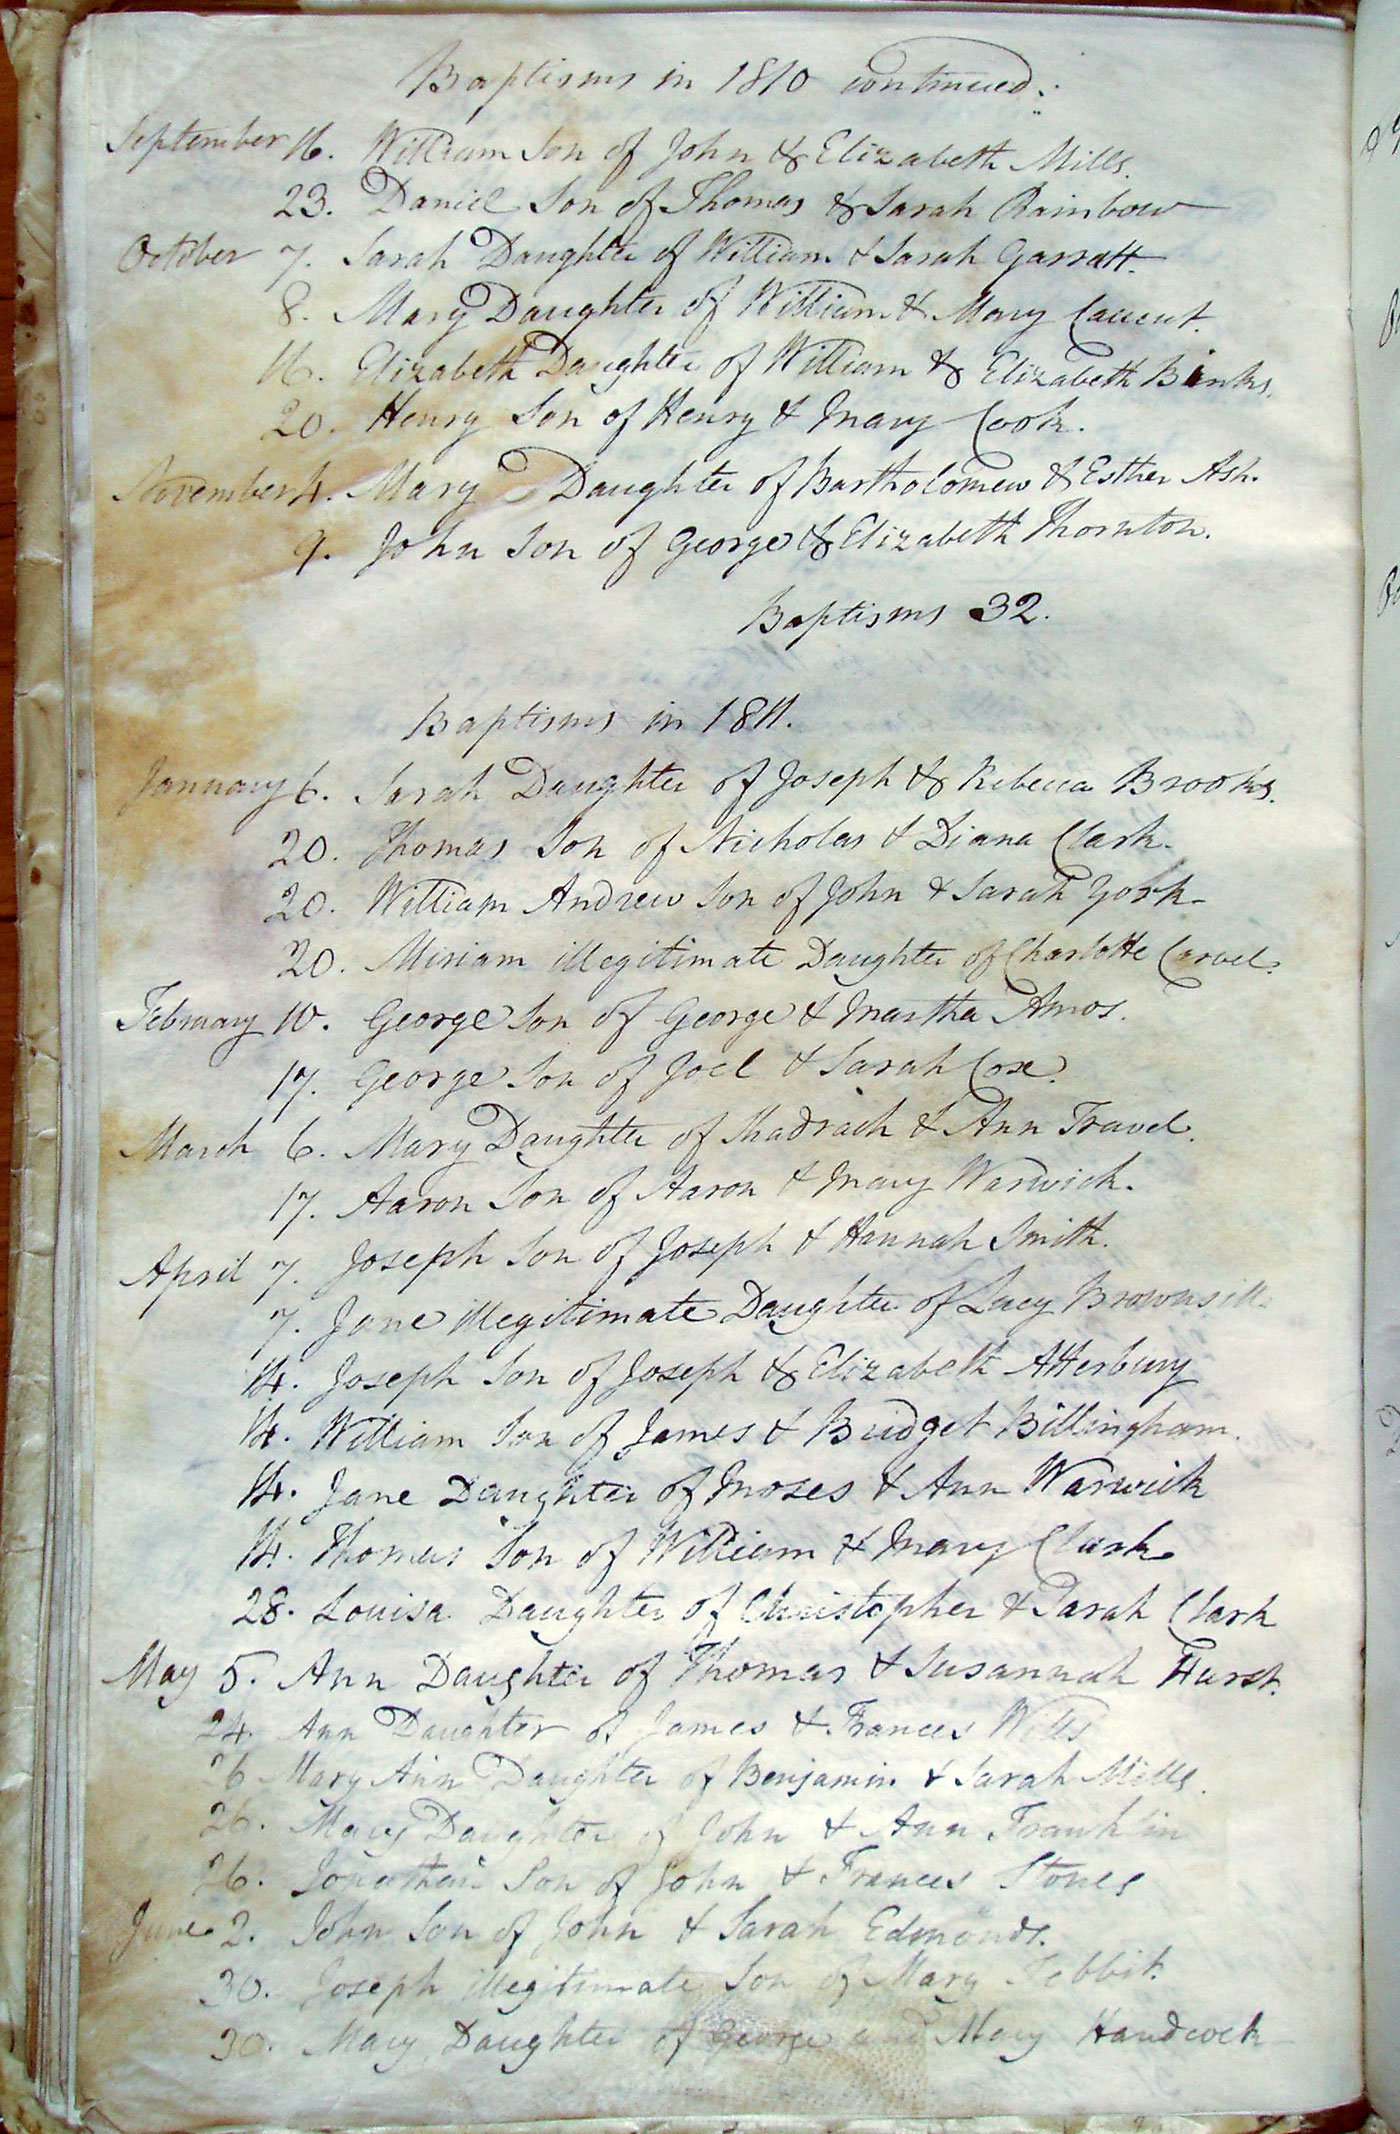 Baptisms in 1810 continued.
September 16. William Son of John & Elizabeth Mills.
23. Daniel Son of Thomas & Sarah Rainbow
October 7. Sarah Daughter of William & Sarah Garratt.
8. Mary Daughter of William & Mary
16. Elizabeth Daughter of William & Elizabeth Binks.
20. Henry Son of Henry & Mary Cook.
November 4. Mary Daughter of Bartholomew & Esther Ash.
9. John Son of George & Elizabeth Thornton.
Baptisms 32.
Baptisms in 1811.
January 6. Sarah Daughter of Joseph & Rebecca Brooks.
20. Thomas Son of Nicholas & Diana Clark.
20. William Andrew Son of John & Sarah York.
20. Miriam illegitimate Daughter of Charlotte Carvel.
February 10. George Son of George & Martha Amos.
17. George Son of Joel & Sarah Cox.
March 6. Mary Daughter of Shadrach & Ann Travel.
17. Aaron Son of Aaron & Mary Warwick.
April 7. Joseph Son of Joseph & Hannah Smith.
7. Jane illegitimate Daughter of Lucy Brownsill.
14. Joseph Son of Joseph & Elizabeth Atterbury
14. William Son of James & Bridget Billingham.
14. Jane Daughter of Moses & Ann Warwick
14. Thomas Son of William & Mary Clark
28. Louisa Daughter of Christopher & Sarah Clark
May 5. Ann Daughter of Thomas & Susannah Hurst.
24. Ann Daughter of James & Frances Wills
26 Mary Ann Daughter of Benjamin & Sarah Mills.
26. Mary Daughter of John & Ann Franklin
26. Jonathan Son of John & Frances Stones
June 2. John Son of John & Sarah Edmonds.
30. Joseph illegitimate Son of Mary Tebbit.
30. Mary Daughter of George and Mary Handcock